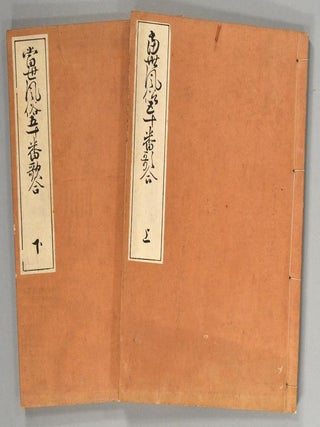 当世風俗五十番歌合
上
當世風俗五十番歌合
下